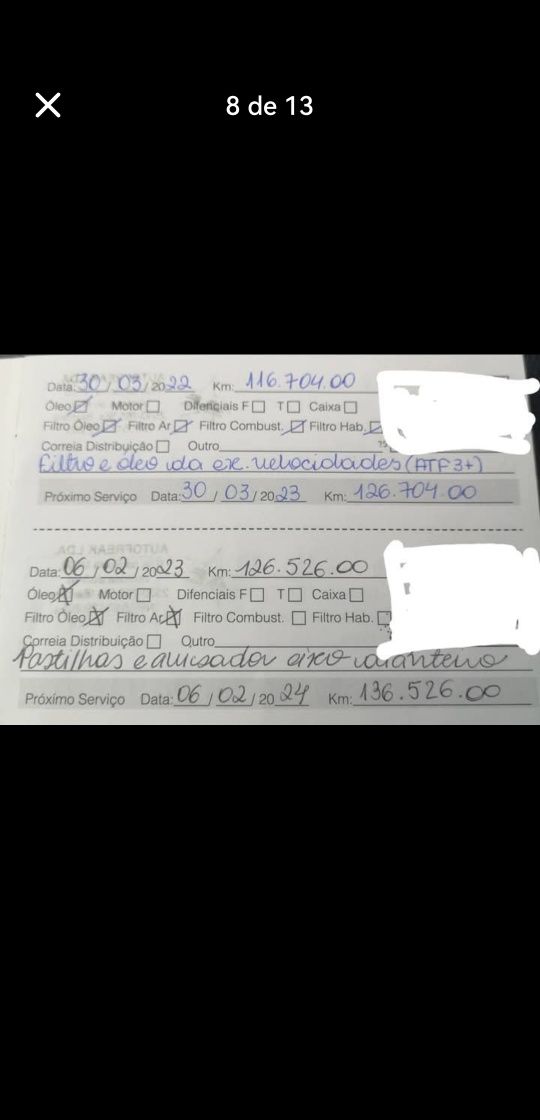 8 de 13
Data: 30/03/2022 Km: 116.704.00
Óleo Motor Difenciais F T Caixa
Filtro Óleo Filtro Ar Filtro Combust. Filtro Hab.
Correia Distribuição Outro
Filtro e óleo da cx. velocidades (ATF3+)
Próximo Serviço Data: 30/03/2023 Km: 126.704.00
Data: 06/02/20023 Km: 126.526.00
Óleo Motor Difenciais F T Caixa
Filtro Óleo Filtro Ar Filtro Combust. Filtro Hab.
Correia Distribuição Outro
Pastilhas e avisador eixo dianteiro
Próximo Serviço Data: 06/02/2024 Km: 136.526.00